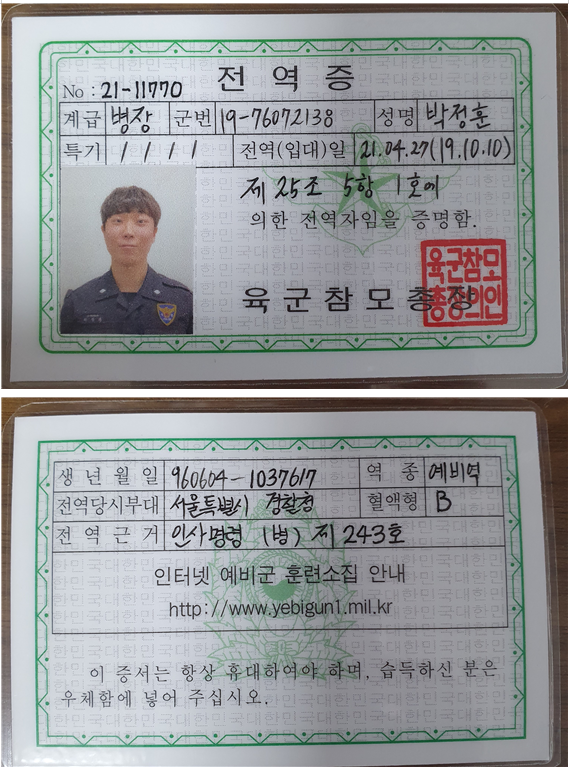 No : 21-11770 전역증
계급 병장 군번 19-76072138 성명 박정훈
특기 / / / / 전역(입대)일 21.04.27(19.10.10)
제 25조 5항 1호에
의한 전역자임을 증명함.
육군참모총장
육군참모
총장의인
생년월일 960604-1037617 역종 예비역
전역당시부대 서울특별시 경찰청 혈액형 B
전역근거 인사명령 (병) 제 243호
인터넷 예비군 훈련소집 안내
http://www.yebigun1.mil.kr
이 증서는 항상 휴대하여야 하며, 습득하신 분은
우체함에 넣어 주십시오.